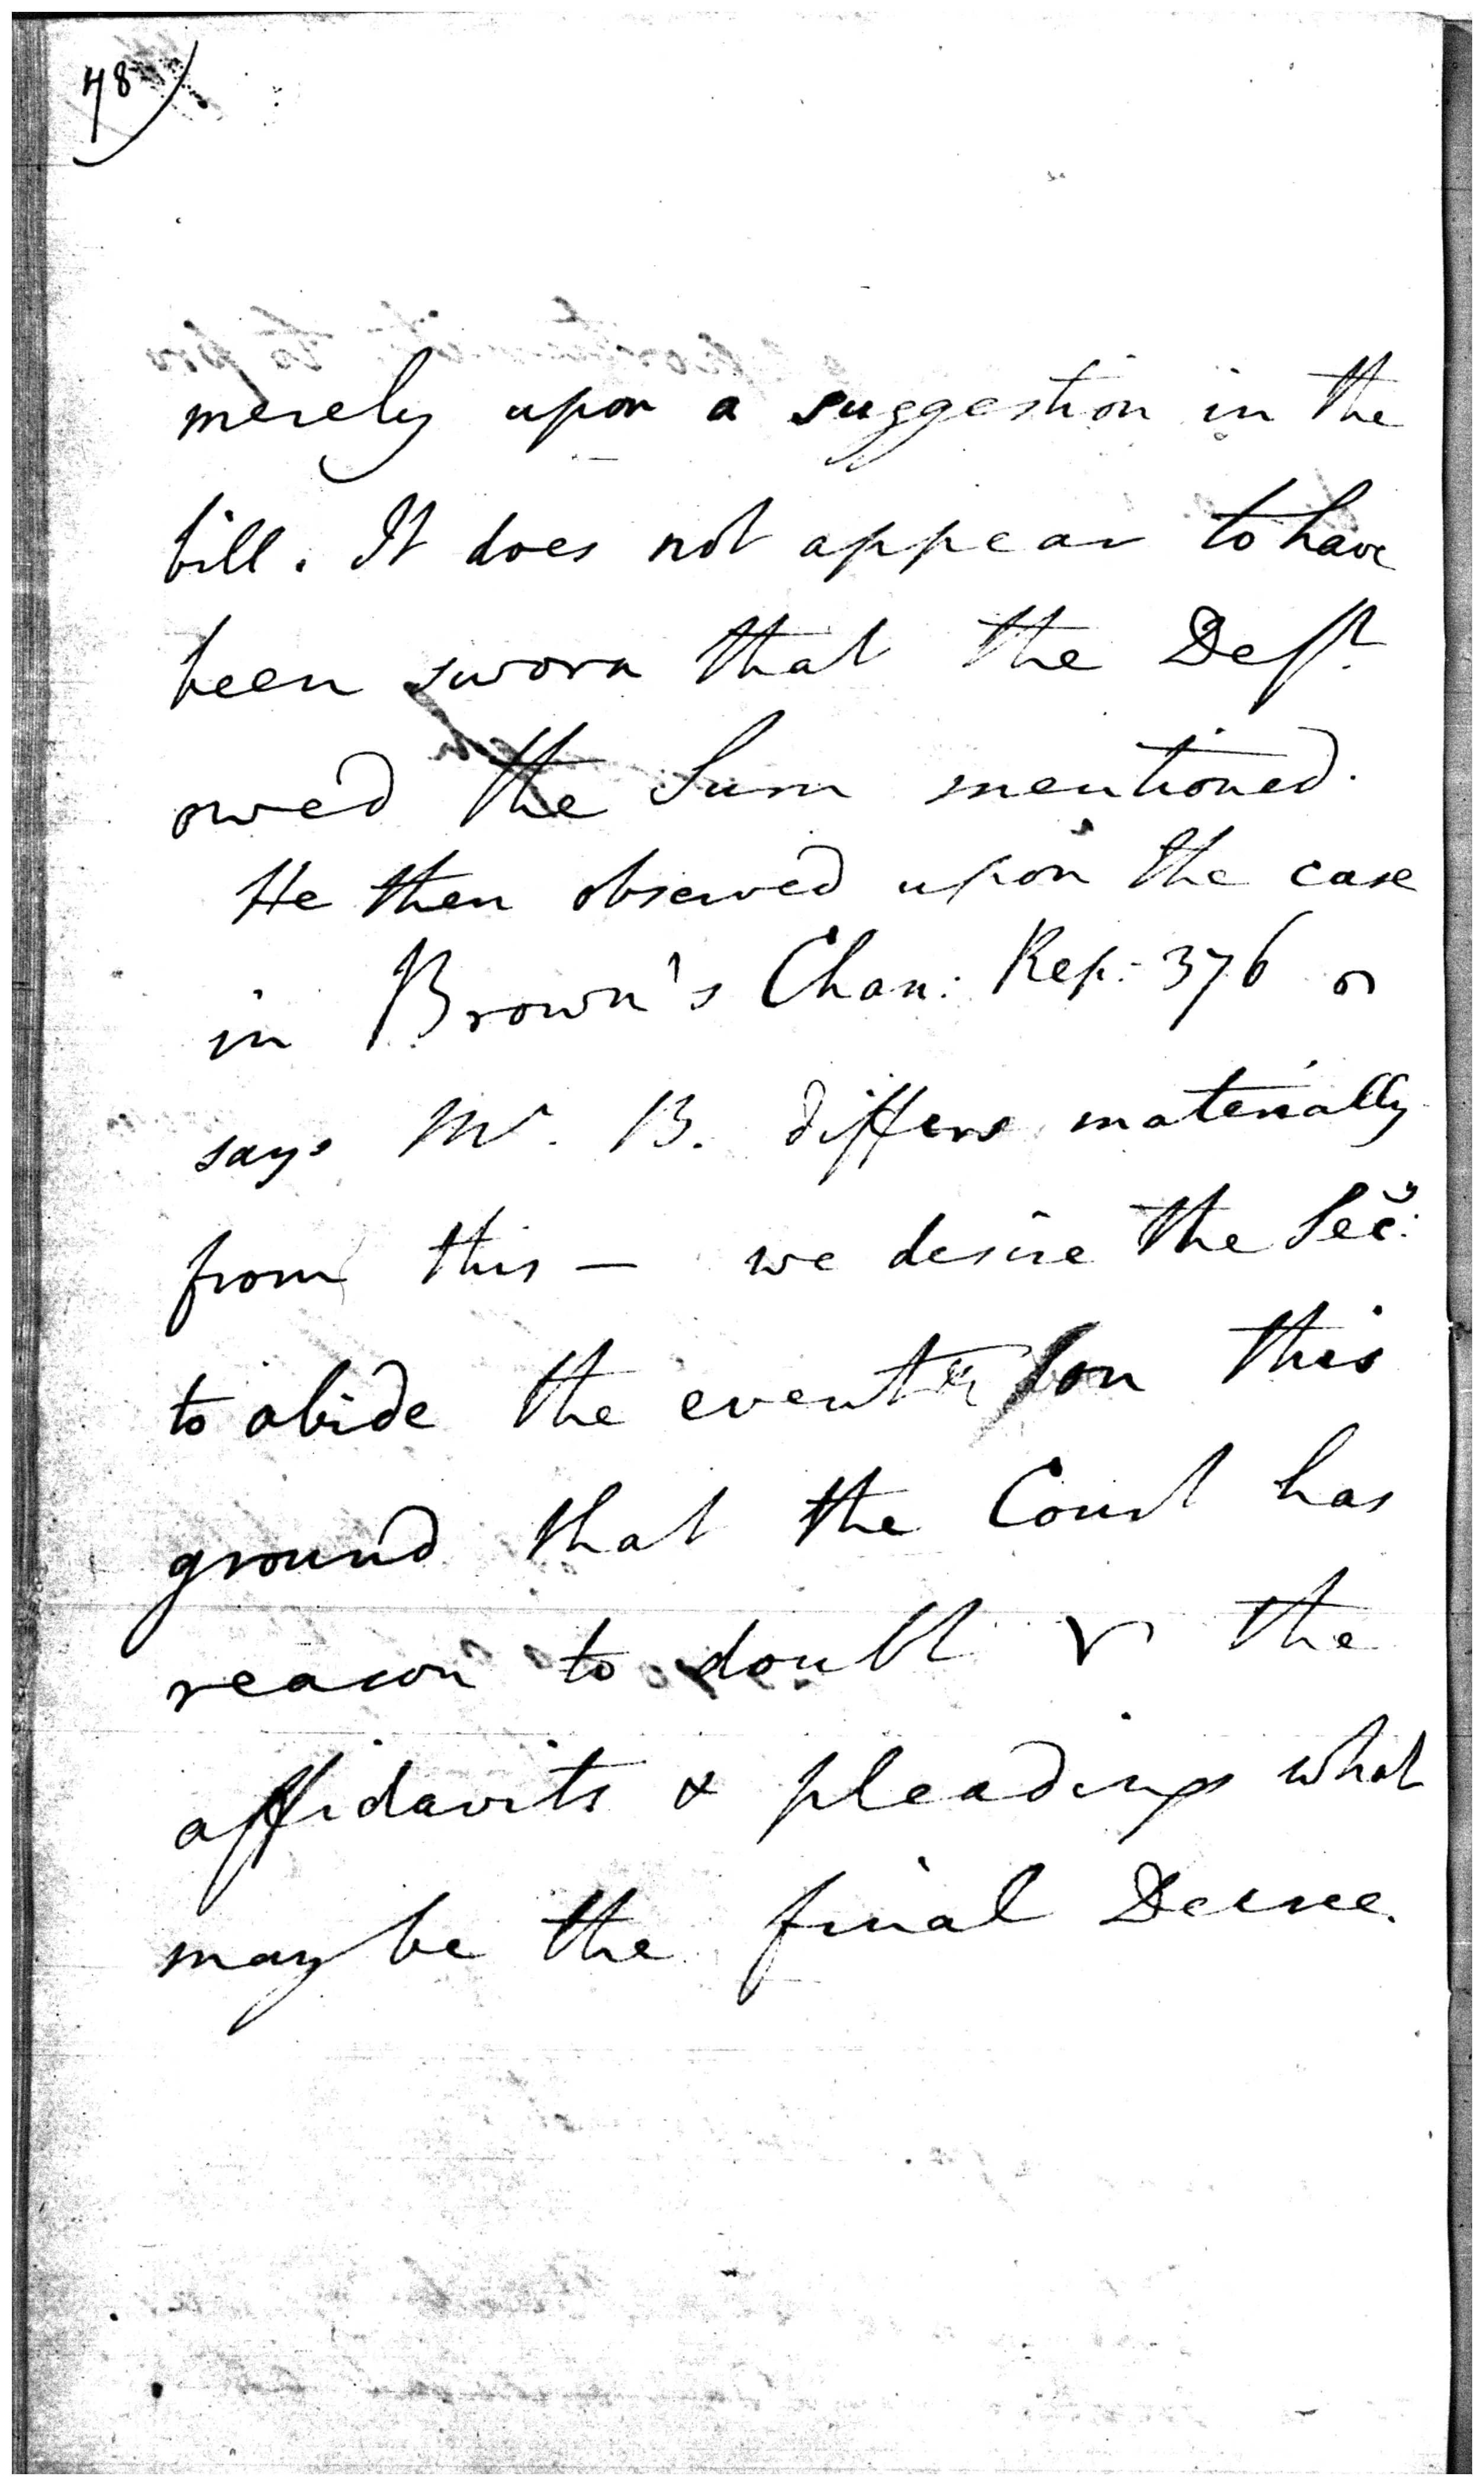 78)
merely upon a suggestion in the
bill. It does not appear to have
been sworn that the Deft.
owed the Sum mentioned.
He then observed upon the case
in Brown's Chan: Rep: 376
says Mr. B. differs materially
from this — we desire the Secy:
to abide the event on this
ground that the Court has
reason to doubt the
affidavits & pleadings what
may be the final Decree.